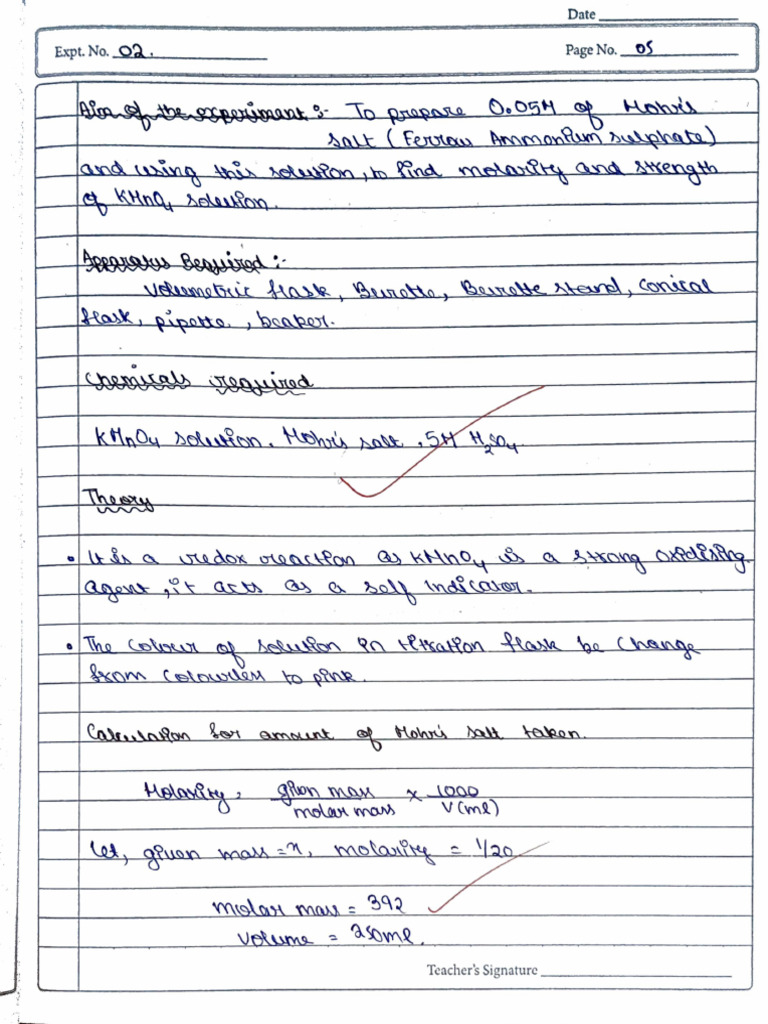 Date
Expt. No. 02.
Page No. 05
Aim of the experiment :- To prepare 0.05M of Mohr's
salt (Ferrous Ammonium sulphate)
and using this solution, to find molarity and strength
of KMnO4 solution.
Apparatus Required :-
Volumetric flask, Burette, Burette stand, conical
flask, pipette, beaker.
Chemicals required
KMnO4 solution, Mohr's salt, 5M H2SO4.
Theory
• It is a redox reaction as KMnO4 is a strong oxidising
agent, it acts as a self indicator.
• The colour of solution in titration flask be change
from colourless to pink.
Calculation for amount of Mohr's salt taken.
Molarity = given mass / molar mass × 1000 / V(ml)
Let, given mass = x, molarity = 1/20
molar mass = 392
volume = 250ml.
Teacher's Signature